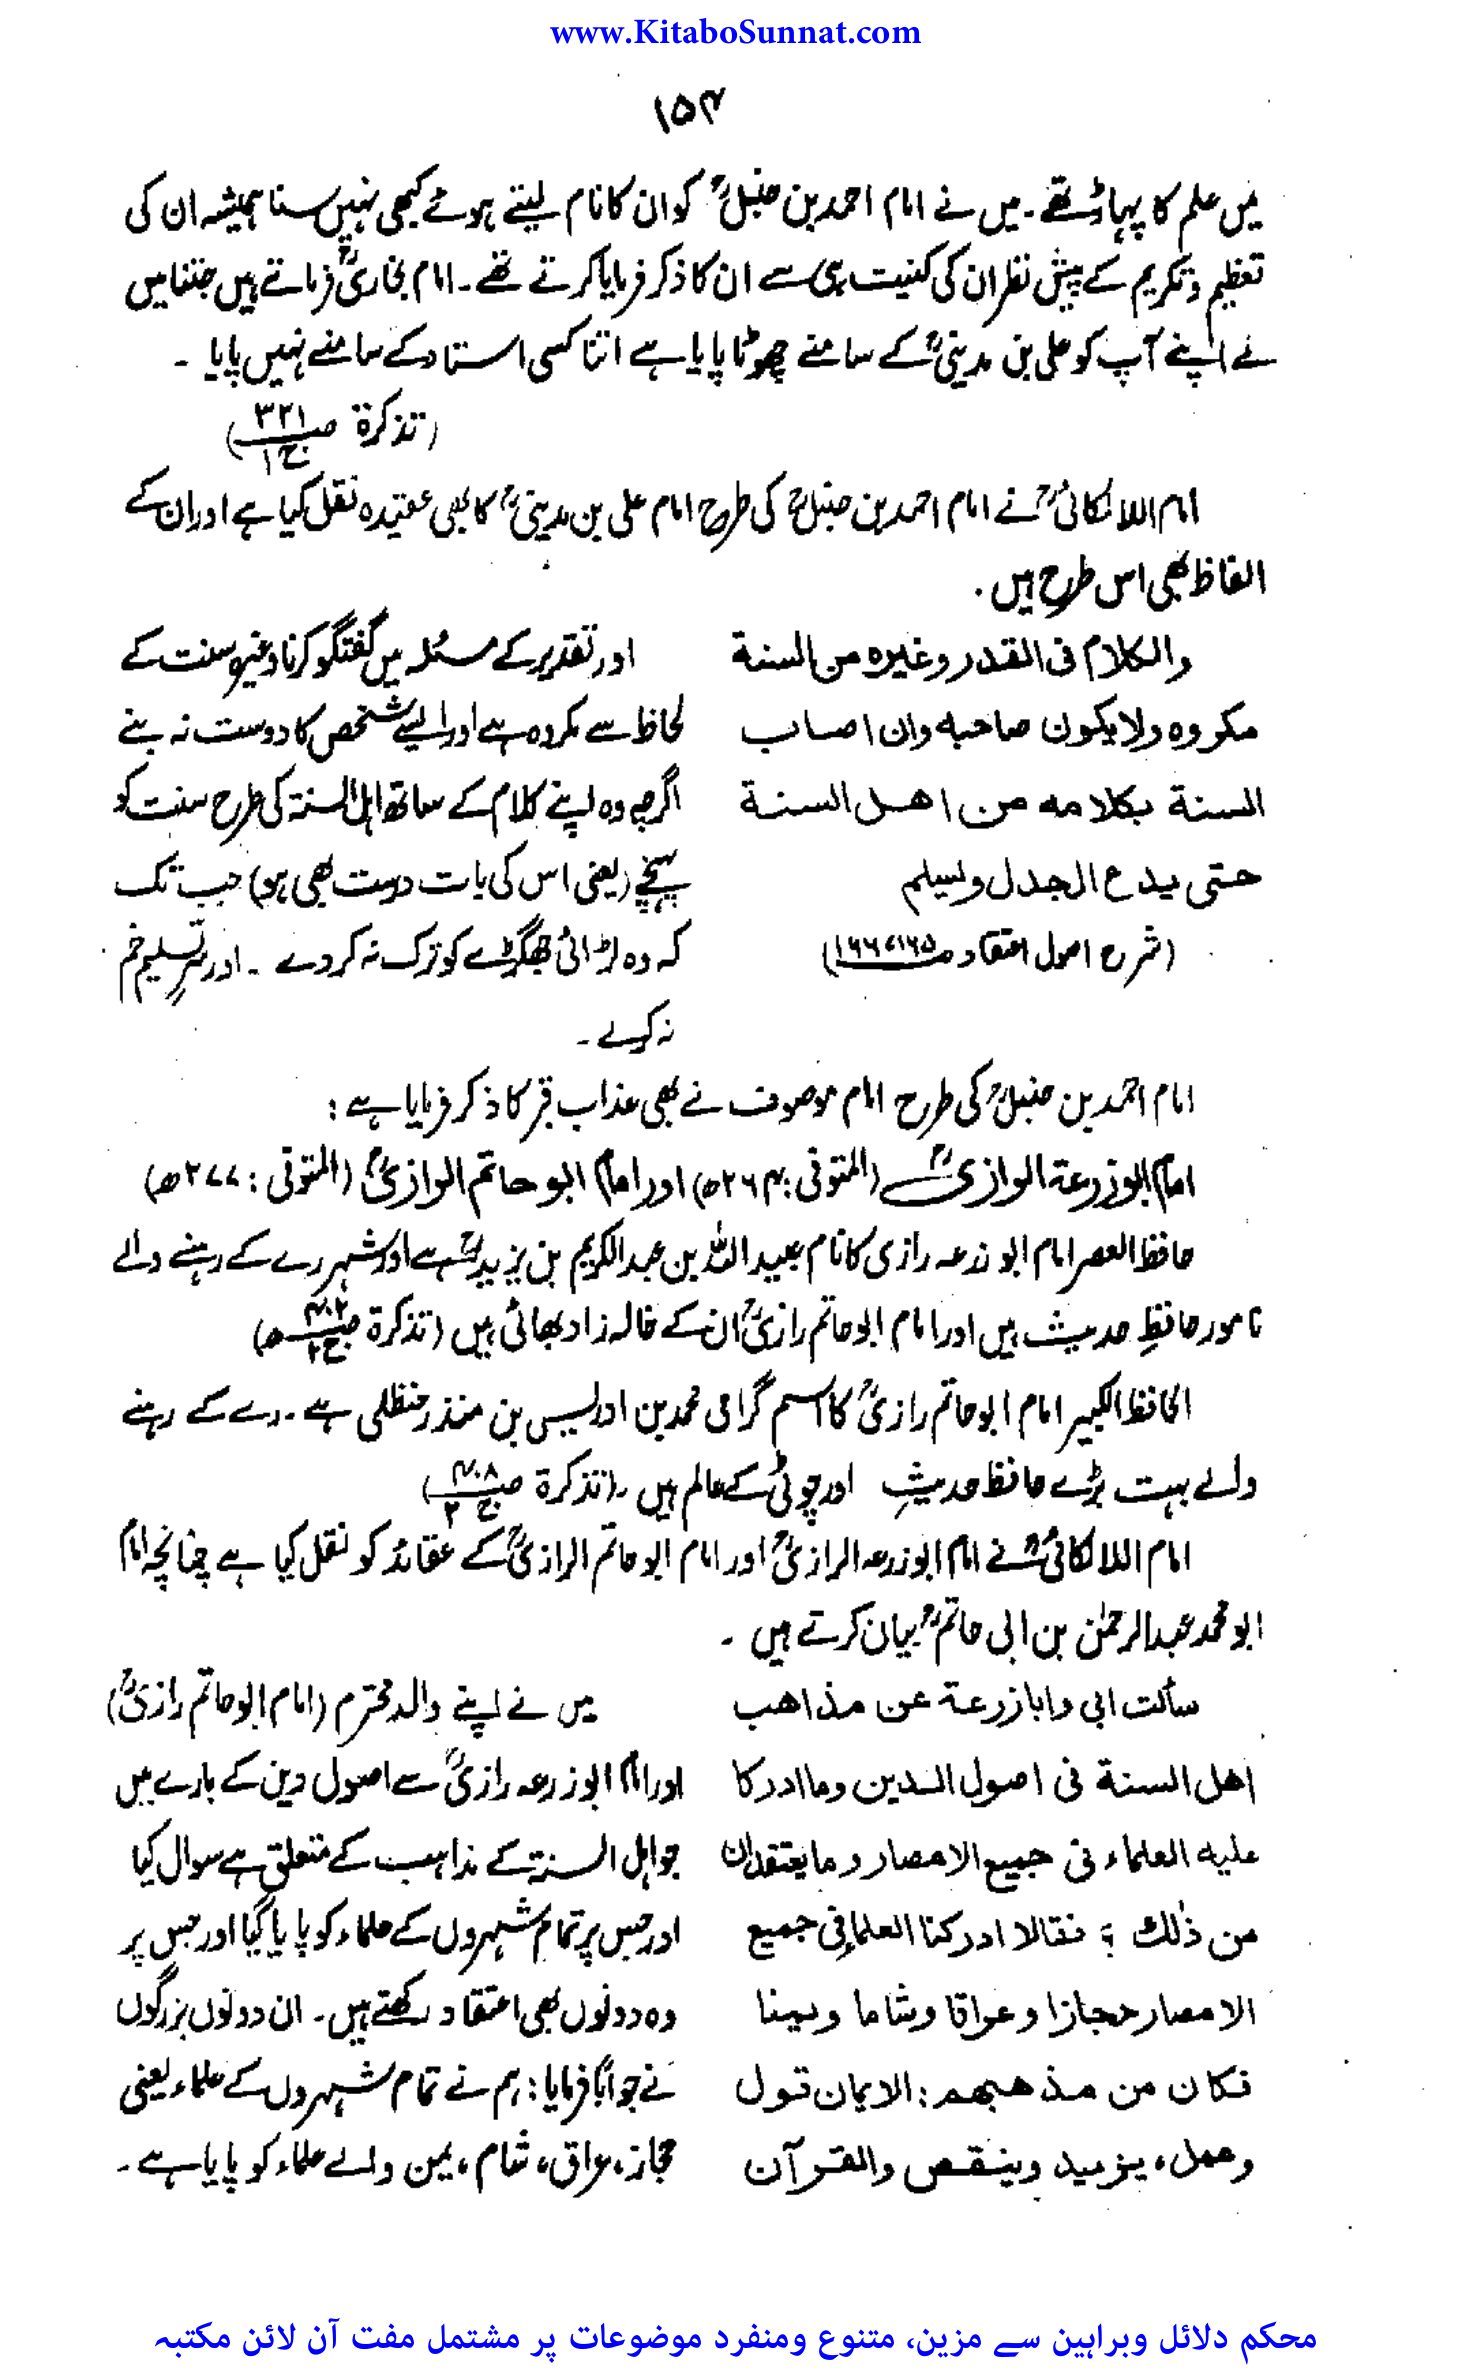 www.KitaboSunnat.com
۱۵۴
میں علم کا پہاڑ تھے۔ میں نے امام احمد بن حنبلؒ کو ان کا نام لیتے ہوئے کبھی نہیں سنا ہمیشہ ان کی
تعظیم و تکریم کے پیش نظر ان کی کنیت ہی سے ان کا ذکر فرمایا کرتے تھے۔ امام بخاریؒ فرماتے ہیں جتنا میں
نے اپنے آپ کو علی بن مدینیؒ کے سامنے چھوٹا پایا ہے اتنا کسی استاد کے سامنے نہیں پایا ۔
(تذکرۃ صـ ۳۲۱ ج ۱)
امام اللالکائیؒ نے امام احمد بن حنبلؒ کی طرح امام علی بن مدینیؒ کا بھی عقیدہ نقل کیا ہے اور ان کے
الفاظ بھی اس طرح ہیں ۔
والکلام فی القدر وغیرہ من السنة
مکروہ ولا یکون صاحبہ وان اصاب
السنة بکلامہ من اھل السنة
حتی یدع الجدل ویسلم
(شرح اصول اعتقاد صـ ۱۶۵، ۱۶۶)
اور تقدیر کے مسئلہ میں گفتگو کرنا وغیرہ سنت کے
لحاظ سے مکروہ ہے اور ایسے شخص کا دوست نہ بنے
اگرچہ وہ اپنے کلام کے ساتھ اہل السنۃ کی طرح سنت کو
پہنچے (یعنی اس کی بات درست بھی ہو) جب تک
کہ وہ لڑائی جھگڑے کو ترک نہ کر دے ۔ اور سرِ تسلیم خم
نہ کرلے ۔
امام احمد بن حنبلؒ کی طرح امام موصوف نے بھی عذاب قبر کا ذکر فرمایا ہے :
امام ابوزرعۃ الرازیؒ (المتوفی: ۲۶۴ھ) اور امام ابو حاتم الرازیؒ (المتوفی : ۲۷۷ھ)
حافظ العصر امام ابو زرعہ رازی کا نام عبید اللہ بن عبدالکریم بن یزیدؒ ہے اور شہر رے کے رہنے والے
نامور حافظِ حدیث ہیں اور امام ابو حاتم رازیؒ ان کے خالہ زاد بھائی ہیں (تذکرۃ صـ ۴۰۲ ج ۲)
الحافظ الکبیر امام ابو حاتم رازیؒ کا اسم گرامی محمد بن ادریس بن منذر حنظلی ہے ۔ رے کے رہنے
والے بہت بڑے حافظ حدیثِ اور چوٹی کے عالم ہیں ۔ (تذکرۃ صـ ۴۰۸ ج ۲)
امام اللالکائیؒ نے امام ابوزرعہ الرازیؒ اور امام ابو حاتم الرازیؒ کے عقائد کو نقل کیا ہے چنانچہ امام
ابو محمد عبدالرحمٰن بن ابی حاتمؒ بیان کرتے ہیں ۔
سألت ابی وابازرعة عن مذاھب
اھل السنة فی اصول الدین وما ادرکا
علیہ العلماء فی جمیع الامصار وما یعتقدان
من ذٰلک ؟ فقالا ادرکنا العلماء فی جمیع
الامصار حجازا وعراقا وشاما ویمنا
فکان من مذھبھم : الایمان قول
وعمل، یزید وینقص والقرآن
میں نے اپنے والد محترم (امام ابو حاتم رازیؒ)
اور امام ابو زرعہ رازیؒ سے اصول دین کے بارے میں
جو اہل السنۃ کے مذاہب کے متعلق ہے سوال کیا
اور جس پر تمام شہروں کے علماء کو پایا گیا اور جس پر
وہ دونوں بھی اعتقاد رکھتے ہیں ۔ ان دونوں بزرگوں
نے جواباً فرمایا : ہم نے تمام شہروں کے علماء یعنی
حجاز، عراق، شام، یمن والے علماء کو پایا ہے ۔
محکم دلائل وبراہین سے مزین، متنوع ومنفرد موضوعات پر مشتمل مفت آن لائن مکتبہ